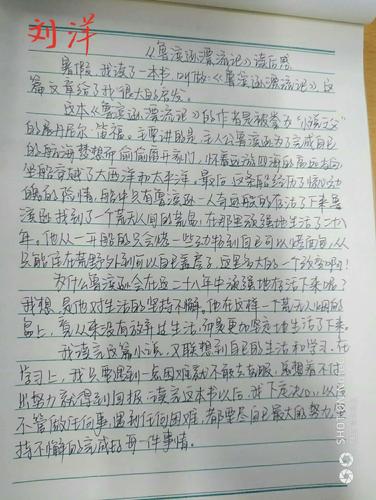 刘洋
《鲁滨逊漂流记》读后感
暑假,我读了一本书,叫做《鲁滨逊漂流记》,这
篇文章给了我很大的启发。
这本《鲁滨逊漂流记》的作者是被誉为“小说之父”
的丹尼尔·笛福。主要讲的是:主人公鲁滨逊为了完成自己
的航海梦想而偷偷离开家门,怀着远游四海的高远志向
坐船穿越了大西洋和太平洋。最后,这条船经历了惊心动
魄的险情,船中只有鲁滨逊一人奇迹般的存活了下来鲁
滨逊找到了个荒无人间的荒岛,在那里顽强地生活了二十八
年。他从一开始的只会烤一些动物到自己可以烤面包,从
只能住在荒野外到可以自己盖房子,这是多大的一个改变啊!
为什么鲁滨逊会在这二十八年中顽强地存活下来呢?
我想,是他对生活的坚持不懈。他在这样一个荒无人烟的
岛上,看从来没有放弃过生活,而是更加坚定地生活了下来。
我读完这篇小说,又联想到自己的生活和学习。在
学习上,我只要遇到一点困难就不敢去克服,总想着不付
出努力就得到回报。读完这本书以后,我下定决心,以后
不管做任何事,遇到任何困难,都要尽自己最大的努力,坚
持不懈的完成好每一件事情。
SHOT ON